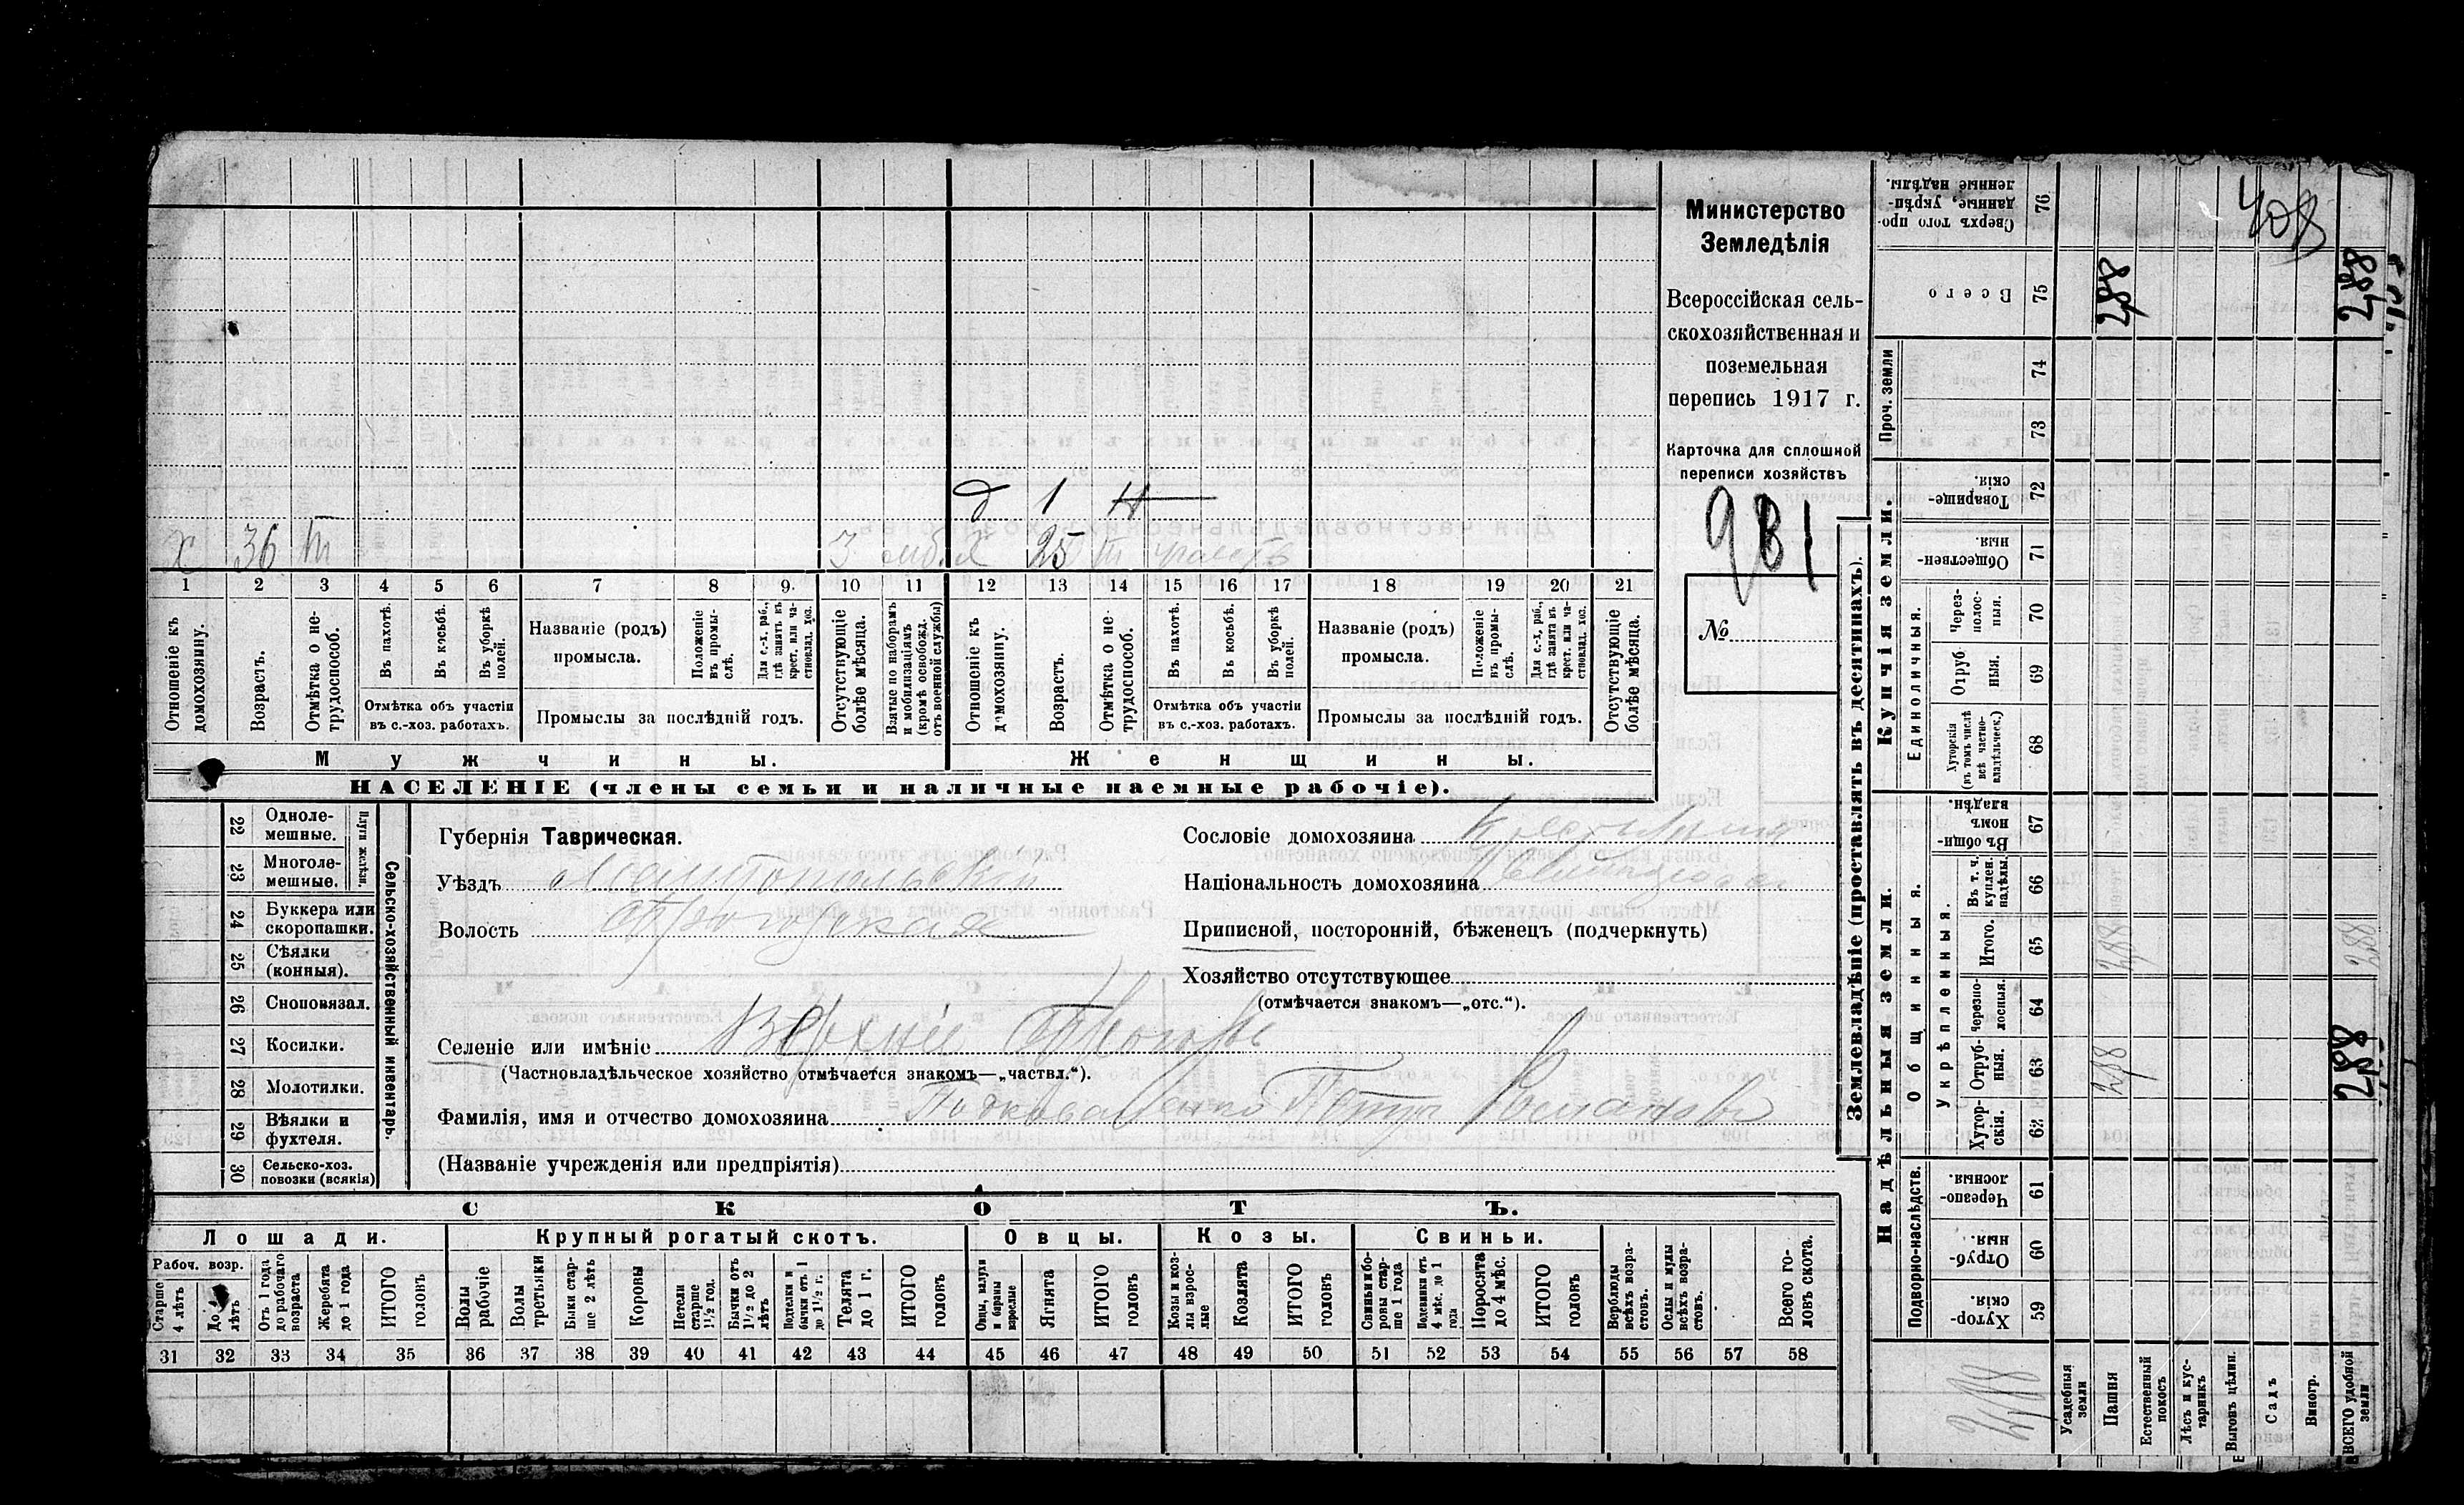 Министерство
Земледѣлія
Всероссійская сель-
скохозяйственная и
поземельная
перепись 1917 г.
Карточка для сплошной
переписи хозяйствъ
981
№
д 1 Н
х 36 т 3 моб х 25 т
1 2 3 4 5 6 7 8 9. 10 11 12 13 14 15 16 17 18 19 20 21
Отношеніе къ домохозяину.
Возрастъ.
Отмѣтка о не-трудоспособ.
Въ пахотѣ.
Въ косьбѣ.
Въ уборкѣ полей.
Отмѣтка объ участіи
въ с.-хоз. работахъ.
Названіе (родъ)
промысла.
Положеніе въ промы-слѣ.
Для с.-х. раб., гдѣ занятъ въ крест. или ча-стновлад. хоз.
Промыслы за послѣдній годъ.
Отсутствующіе болѣе мѣсяца.
Взятые по наборамъ и мобилизаціямъ (кромѣ освобожд. отъ военной службы)
Отношеніе къ домохозяину.
Возрастъ.
Отмѣтка о не-трудоспособ.
Въ пахотѣ.
Въ косьбѣ.
Въ уборкѣ полей.
Отмѣтка объ участіи
въ с.-хоз. работахъ.
Названіе (родъ)
промысла.
Положеніе въ промы-слѣ.
Для с.-х. раб., гдѣ занята въ крест. или ча-стновлад. хоз.
Промыслы за послѣдній годъ.
Отсутствующіе болѣе мѣсяца.
Мужчины.
Женщины.
НАСЕЛЕНІЕ (члены семьи и наличные наемные рабочіе).
22 Однолемешные.
23 Многолемешные.
Плуги желѣзн.
24 Буккера или скоропашки.
25 Сѣялки (конныя).
26 Сноповязал.
27 Косилки.
28 Молотилки.
29 Вѣялки и фухтеля.
30 Сельско-хоз. повозки (всякія)
Сельско-хозяйственный инвентарь.
Губернія Таврическая.
Уѣздъ Мелитопольскій
Волость
Сословіе домохозяина
Національность домохозяина
Приписной, посторонній, бѣженецъ (подчеркнуть)
Хозяйство отсутствующее
(отмѣчается знакомъ—„отс.“).
Селеніе или имѣніе Верхніе
(Частновладѣльческое хозяйство отмѣчается знакомъ—„частвл.“).
Фамилія, имя и отчество домохозяина Петръ Романовъ
(Названіе учрежденія или предпріятія)
СКОТЪ.
Лошади.
Крупный рогатый скотъ.
Овцы.
Козы.
Свиньи.
Рабоч. возр.
Старше 4 лѣтъ
До 4 лѣтъ
Отъ 1 года до рабочаго возраста
Жеребята до 1 года
ИТОГО головъ
Волы рабочіе
Волы третьяки
Быки старше 2 лѣтъ
Коровы
Нетели старше 1½ год.
Бычки отъ 1½ до 2 лѣтъ
Подтелки и бычки отъ 1 до 1½ г.
Телята до 1 г.
ИТОГО головъ
Овцы, валухи и бараны взрослые
Ягнята
ИТОГО головъ
Козы и козлы взрослые
Козлята
ИТОГО головъ
Свиньи и боровы старше 1 года
Подсвинки отъ 4 мѣс. до 1 года
Поросята до 4 мѣс.
ИТОГО головъ
Верблюды всѣхъ возрастовъ.
Ослы и мулы всѣхъ возрастовъ.
Всего головъ скота.
31 32 33 34 35 36 37 38 39 40 41 42 43 44 45 46 47 48 49 50 51 52 53 54 55 56 57 58
Землевладѣніе (проставлять въ десятинахъ).
Надѣльныя земли.
Купчія земли.
Проч. земли
Подворно-наслѣдств.
Общинныя.
Укрѣпленныя.
Единоличныя.
59 Хуторскія.
60 Отрубныя.
61 Черезполосныя.
62 Хуторскія.
63 Отрубныя. 288
64 Черезполосныя.
65 Итого. 288 288
66 Въ т. ч. куплен. надѣлы.
67 Въ общинномъ владѣн.
68 Хуторскія (въ томъ числѣ всѣ частновладѣльческ.)
69 Отрубныя.
70 Черезполосныя.
71 Общественныя.
72 Товарищескія.
73
74
75 Всего 288 288
76 Сверхъ того проданные, укрѣпленные надѣлы.
408
Усадебныя земли
Пашня
Естественный покосъ
Лѣсъ и кустарникъ
Выгонъ цѣлин.
Садъ
Виногр.
ВСЕГО удобной земли